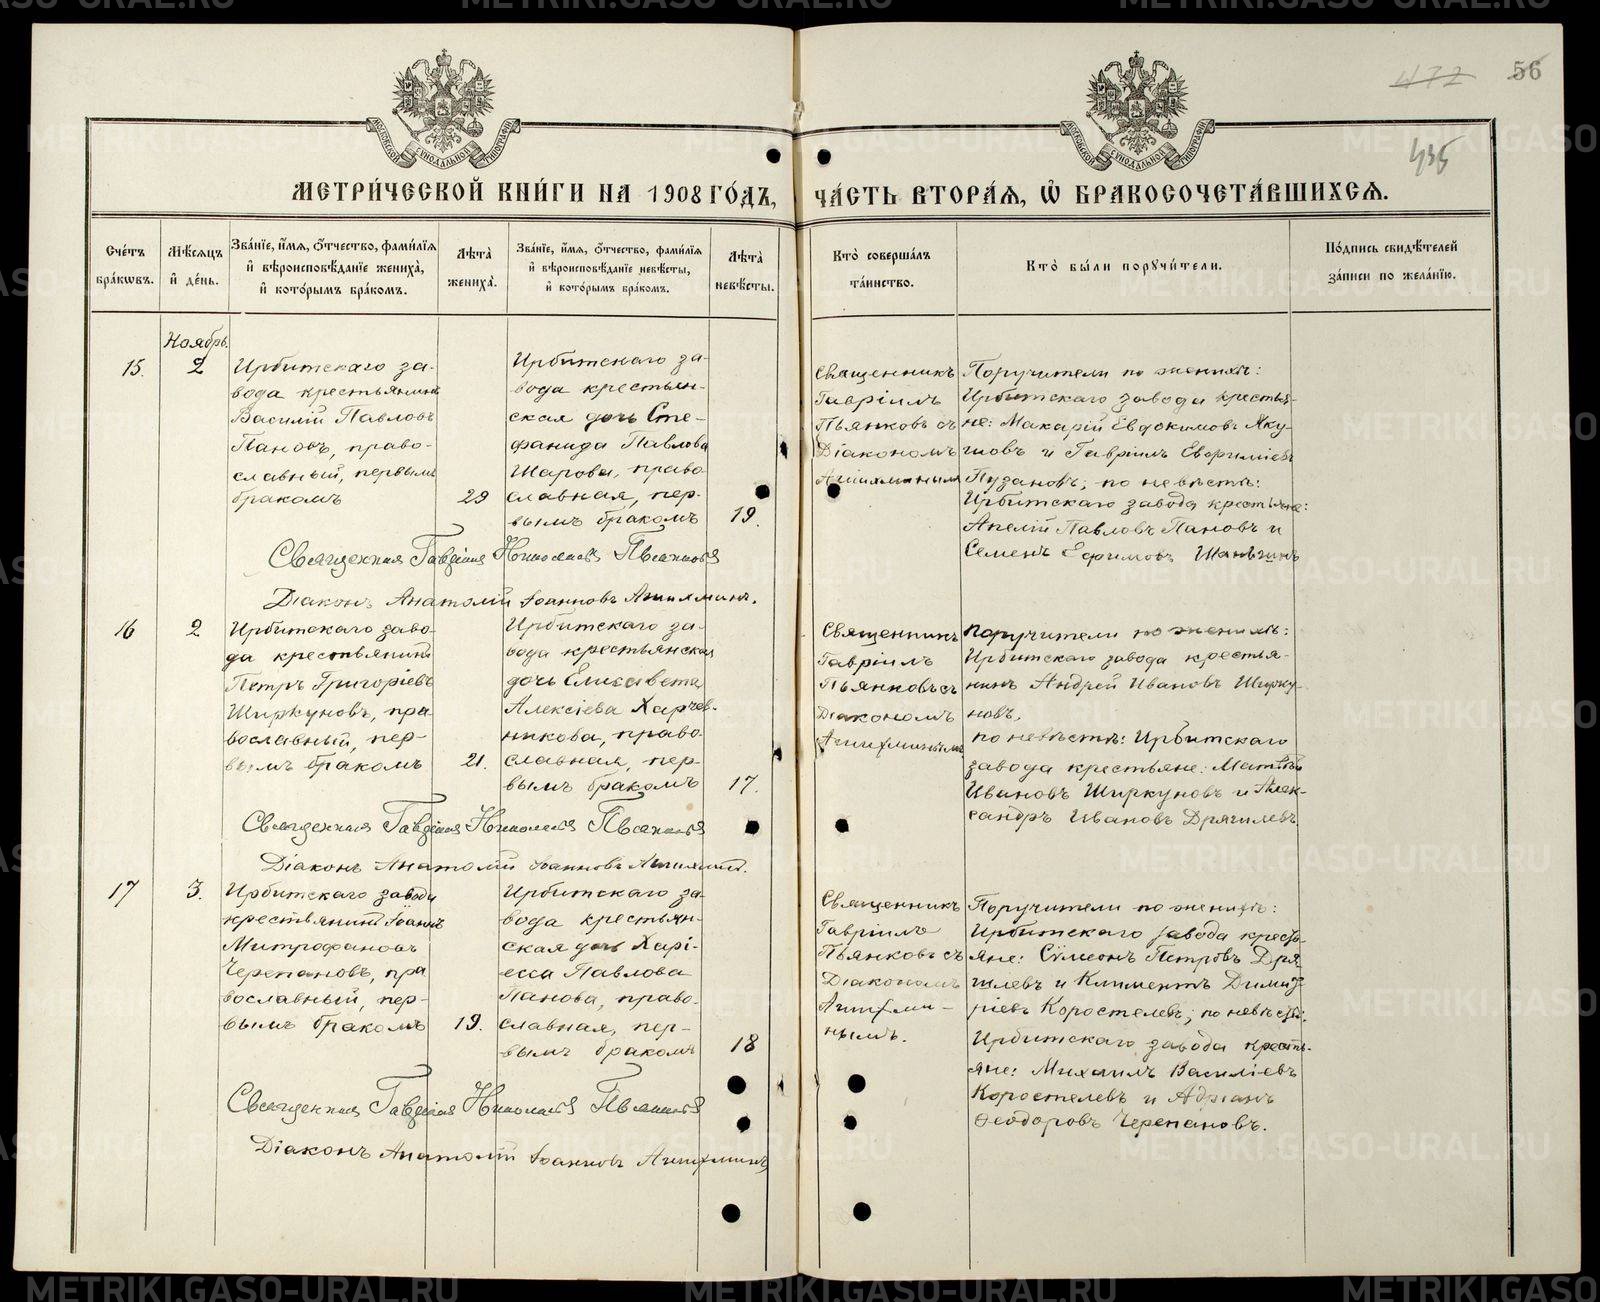 472
56
435
МОСКОВСКОЙ СѴНОДАЛЬНОЙ ТИПОГРАФІИ
МОСКОВСКОЙ СѴНОДАЛЬНОЙ ТИПОГРАФІИ
МЕТРИ́ЧЕСКОЙ КНИ́ГИ НА 1908 ГО́ДЪ,
ЧА́СТЬ ВТОРА́Я, Ѡ҆ БРАКОСОЧЕТА́ВШИХСѦ.
Сче́тъ
бра́кѡвъ.
Мѣ́сяцъ
и҆ де́нь.
Зва́нїе, и҆́мя, ѻ҆́тчество, фами́лїя
и҆ вѣроисповѣ́данїе жениха̀,
и҆ кото́рымъ бра́комъ.
Лѣ́та̀
жениха̀.
Зва́нїе, и҆́мя, ѻ҆́тчество, фами́лїя
и҆ вѣроисповѣ́данїе невѣ́сты,
и҆ кото́рымъ бра́комъ.
Лѣ́та̀
невѣ́сты.
Кто̀ соверша́лъ
та́инство.
Кто̀ бы́ли поручи́тели.
По́дпись свидѣ́телей
за́писи по жела́нїю.
Ноябрь.
15.
2
Ирбитскаго за-
вода крестьянинъ
Василій Павловъ
Пановъ, право-
славный, первымъ
бракомъ
29
Ирбитскаго за-
вода крестьян-
ская дочь Сте-
фанида Павлова
Шарова, право
славная, пер-
вымъ бракомъ
19.
Священникъ
Гавріилъ
Пьянковъ съ
Діакономъ
Поручители по женихѣ:
Ирбитскаго завода крестья-
не: Макарій Евдокимовъ Яку-
шовъ и Гавріилъ
Пузановъ; по невѣстѣ:
Ирбитскаго завода крестьяне:
Павловъ Пановъ и
Семенъ Ефимовъ
Священникъ Гавріилъ Николаевъ Пьянковъ
Діаконъ Анатолій Іоанновъ
16
2
Ирбитскаго заво-
да крестьянинъ
Петръ Григоріевъ
Ширкуновъ, пра-
вославный, пер-
вымъ бракомъ
21.
Ирбитскаго за-
вода крестьянская
дочь Елисавета
Алексіева Харчев-
никова, право-
славная, пер-
вымъ бракомъ
17.
Священникъ
Гавріилъ
Пьянковъ съ
Діакономъ
Поручители по женихѣ:
Ирбитскаго завода крестья-
нинъ Андрей Ивановъ Ширку-
новъ,
по невѣстѣ: Ирбитскаго
завода крестьяне: Матѳѣй
Ивановъ Ширкуновъ и Алек-
сандръ Ивановъ Дрягилевъ.
Священникъ Гавріилъ Николаевъ Пьянковъ
Діаконъ Анатолій Іоанновъ
17
3.
Ирбитскаго завода
крестьянинъ Іоаннъ
Митрофановъ
Черепановъ, пра
вославный, пер-
вымъ бракомъ
19.
Ирбитскаго за-
вода крестьян-
ская дочь Харі-
есса Павлова
Панова, право-
славная, пер-
вымъ бракомъ
18
Священникъ
Гавріилъ
Пьянковъ съ
Діакономъ
Поручители по женихѣ:
Ирбитскаго завода кресть-
яне: Сѵмеонъ Петровъ Дря-
гилевъ и Климентъ Димит-
ріевъ Коростелевъ; по невѣстѣ:
Ирбитскаго завода кресть-
яне: Михаилъ Василіевъ
Коростелевъ и Адріанъ
Ѳеодоровъ Черепановъ.
Священникъ Гавріилъ Николаевъ Пьянковъ
Діаконъ Анатолій Іоанновъ
METRIKI.GASO-URAL.RU